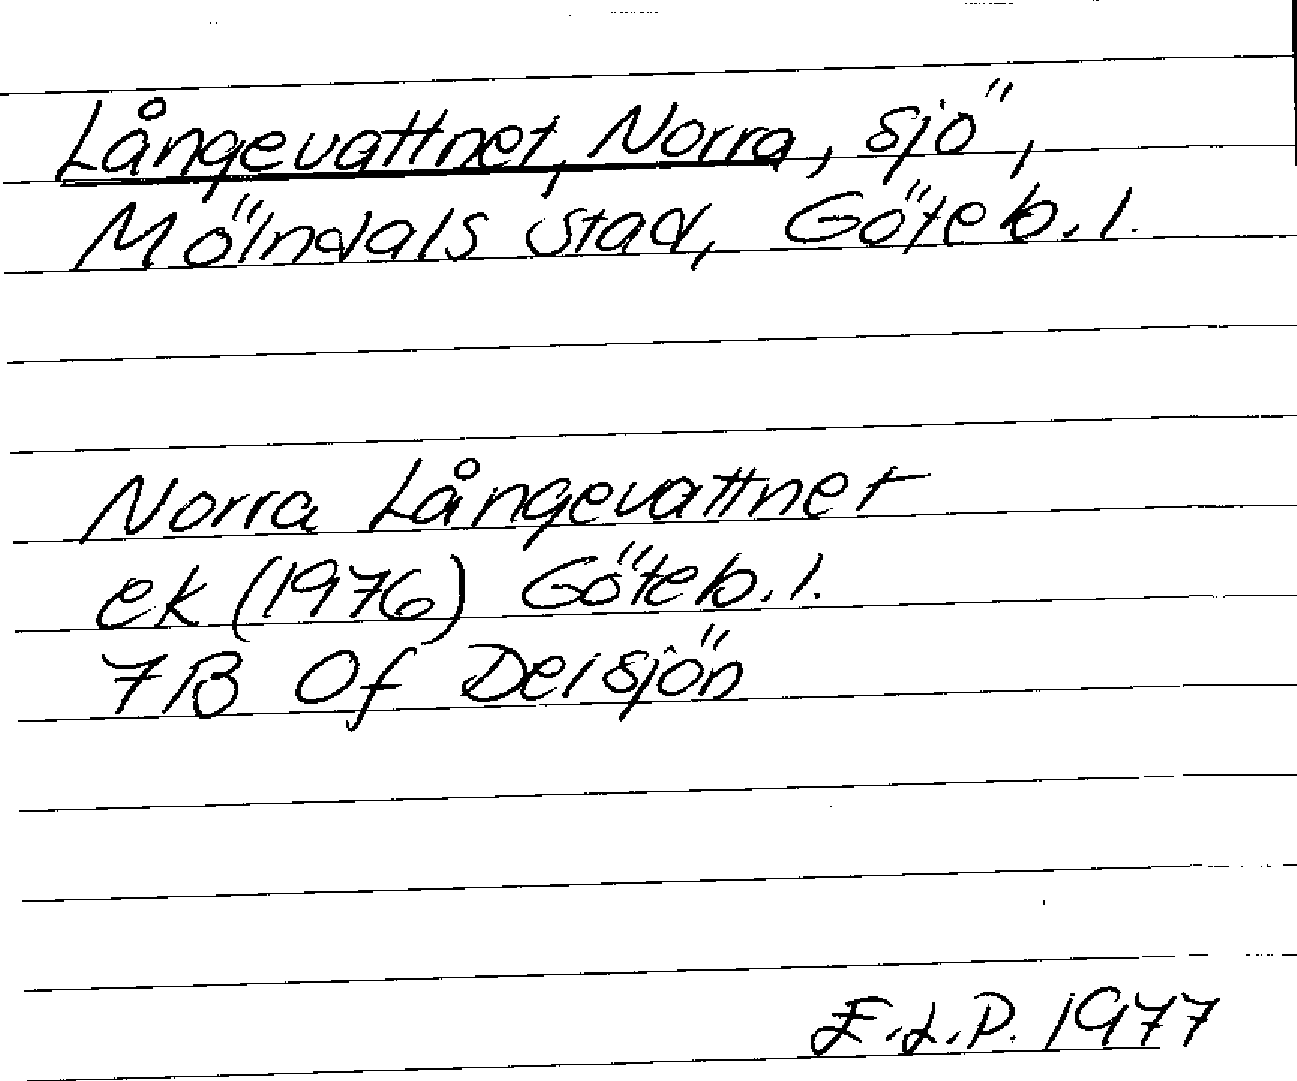 Långevattnet, Norra, sjö,
Mölndals stad, Göteb. l.
Norra Långevattnet
ek (1976) Göteb. l.
7B 0f Delsjön
E.L.P. 1977